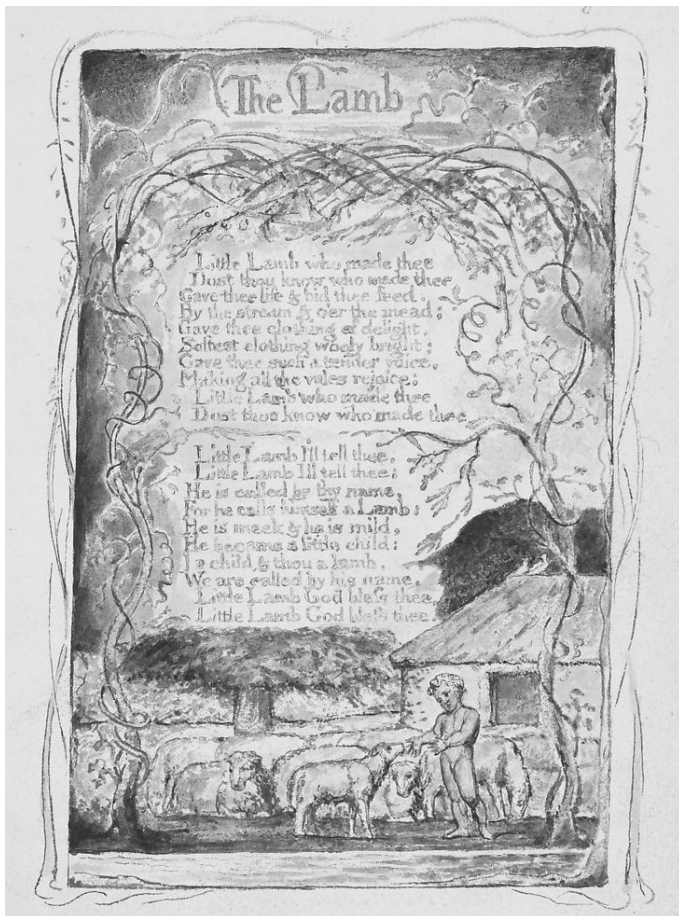 The Lamb
Little Lamb who made thee
Dost thou know who made thee
Gave thee life & bid thee feed.
By the stream & o'er the mead;
Gave thee clothing of delight,
Softest clothing wooly bright;
Gave thee such a tender voice,
Making all the vales rejoice:
Little Lamb who made thee
Dost thou know who made thee
Little Lamb I'll tell thee,
Little Lamb I'll tell thee;
He is called by thy name,
For he calls himself a Lamb:
He is meek & he is mild,
He became a little child:
I a child & thou a lamb,
We are called by his name.
Little Lamb God bless thee,
Little Lamb God bless thee.